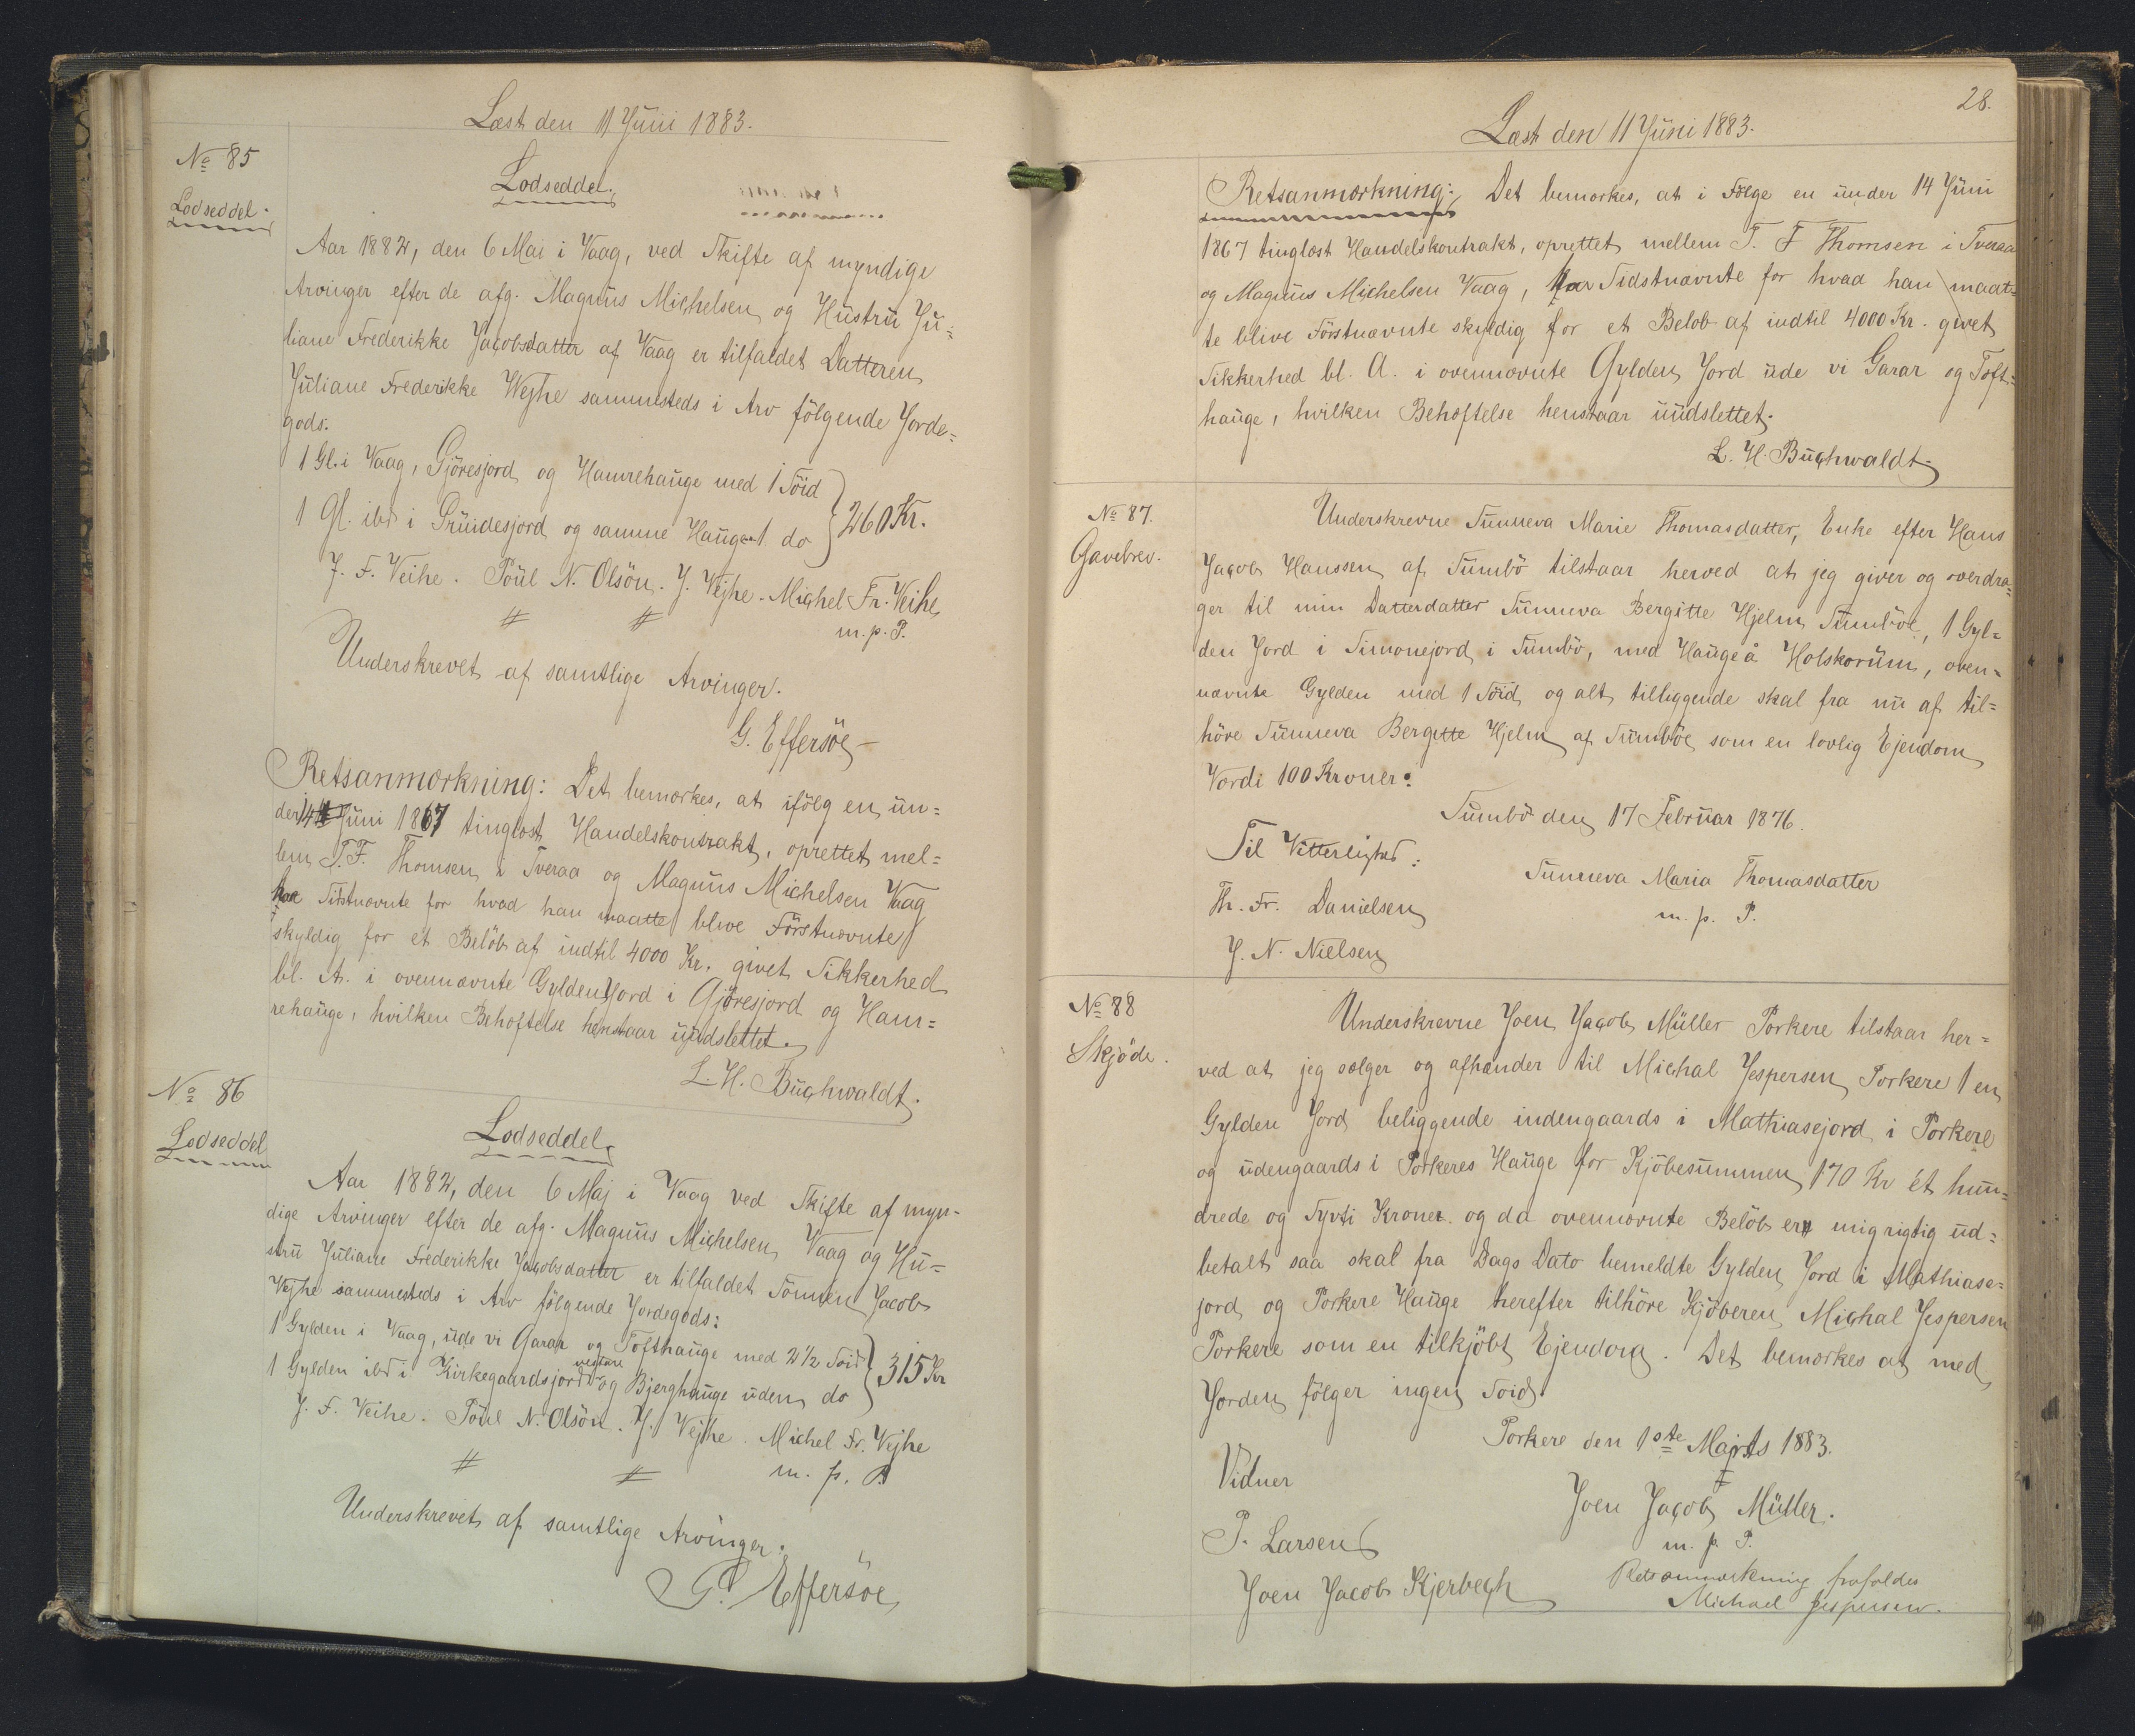 Læst den 11 Juni 1883.
No 85
Lodseddel.
Lodseddel.
Aar 1882, den 6 Mai i Vaag, ved Skifte af myndige
Arvinger efter de afg. Magnus Michelsen og Hustru Ju-
liane Frederikke Jacobsdatter af Vaag er tilfaldet Datteren
Juliane Frederikke Wejhe sammesteds i Arv följende Jorde=
gods:
1 Gl. i Vaag, Gjöresjord og Hamrehauge med 1 Söid
1 Gl. ibd i Grüidesjord og samme Hauge 1 do } 260 Kr.
J. F. Veihe. Poül N. Olsön. J. Vejhe. Michel Fr. Veihe
m. p. P.
Underskrevet af samtlige Arvinger.
G. Effersöe
Retsanmærkning: Det bemærkes, at ifölg en un=
der 14 Juni 1867 tinglæst Handelskontrakt, oprettet mel=
lem T. F. Thomsen i Tveraa og Magnus Michelsen Vaag
har Sidstnævnte for hvad han maatte blive Förstnævnte
skyldig for et Belöb af indtil 4000 Kr. givet Sikkerhed
bl. A. i ovennævnte Gylden Jord i Gjöresjord og Ham=
rehauge, hvilken Behæftelse henstaar uudslettet.
L. H. Buchwaldt.
No 86
Lodseddel
Lodseddel
Aar 1882, den 6 Maj i Vaag ved Skifte af myn-
dige Arvinger efter de afg. Magnus Michelsen Vaag og Hu=
stru Juliane Frederikke Jacobsdatter er tilfaldet Sönnen Jacob
Vejhe sammesteds i Arv följende Jordegods:
1 Gylden i Vaag, ude vi Garar og Tofthauge med 2 1/2 Soid
1 Gylden ibd i Kirkegaardsjord og Bjerghauge uden do } 315 Kr
J. F. Veihe. Poül N. Olsön. J. Vejhe. Michel Fr. Vejhe
m. p. P.
Underskrevet af samtlige Arvinger.
G. Effersöe
28.
Læst den 11 Juni 1883.
Retsanmærkning: Det bemærkes, at i Fölge en under 14 Juni
1867 tinglæst Handelskontrakt, oprettet mellem T. F Thomsen i Tveraa
og Magnus Michelsen Vaag, har Sidstnævnte for hvad han maat=
te blive Förstnævnte skyldig for et Belöb af indtil 4000 Kr. givet
Sikkerhed bl. A. i ovennævnte Gylden Jord ude vi Garar og Toft=
hauge, hvilken Behæftelse henstaar uudslettet.
L. H. Buchwaldt
No 87.
Gavebrev.
Underskrevne Sunneva Marie Thomasdatter, Enke efter Hans
Jacob Hanssen af Sumbö tilstaar herved at jeg giver og overdra=
ger til min Datterdatter Sunneva Bergitte Hjelm Sumböe, 1 Gyl=
den Jord i Simonejord i Sumbö, med Hauge å Holskorum, oven=
nævnte Gylden med 1 Söid og alt tilliggende skal fra nu af til=
höre Sunneva Bergitte Hjelm af Sumböe som en lovlig Ejendom
Værdi 100 Kroner.
Sumbö den 17 Februar 1876.
Til Vitterlighed:
Sunneva Maria Thomasdatter
m. p. P.
Th. Fr. Danielsen
J. N. Nielsen
No 88
Skjöde.
Underskrevne Joen Jacob Müller Porkere tilstaar her=
ved at jeg sælger og afhænder til Michal Jespersen Porkere 1 en
Gylden Jord beliggende indengaards i Mathiasejord i Porkere
og udengaards i Porkeres Hauge for Kjöbesummen 170 Kr ét hun=
drede og Syvti Kroner og da ovennævnte Belöb er mig rigtig ud=
betalt saa skal fra Dags Dato bemeldte Gylden Jord i Mathiase=
jord og Porkere Hauge herefter tilhöre Kjöberen Michal Jespersen
Porkere som en tilkjöbt Ejendom. Det bemærkes at med
Jorden fölger ingen Soid.
Porkere den 1ste Marts 1883.
Vidner
Joen Jacob Müller.
m. p. P.
P. Larsen
Joen Jacob Kjerbegh
Retsanmærkning frafaldes
Michael Jespersen.